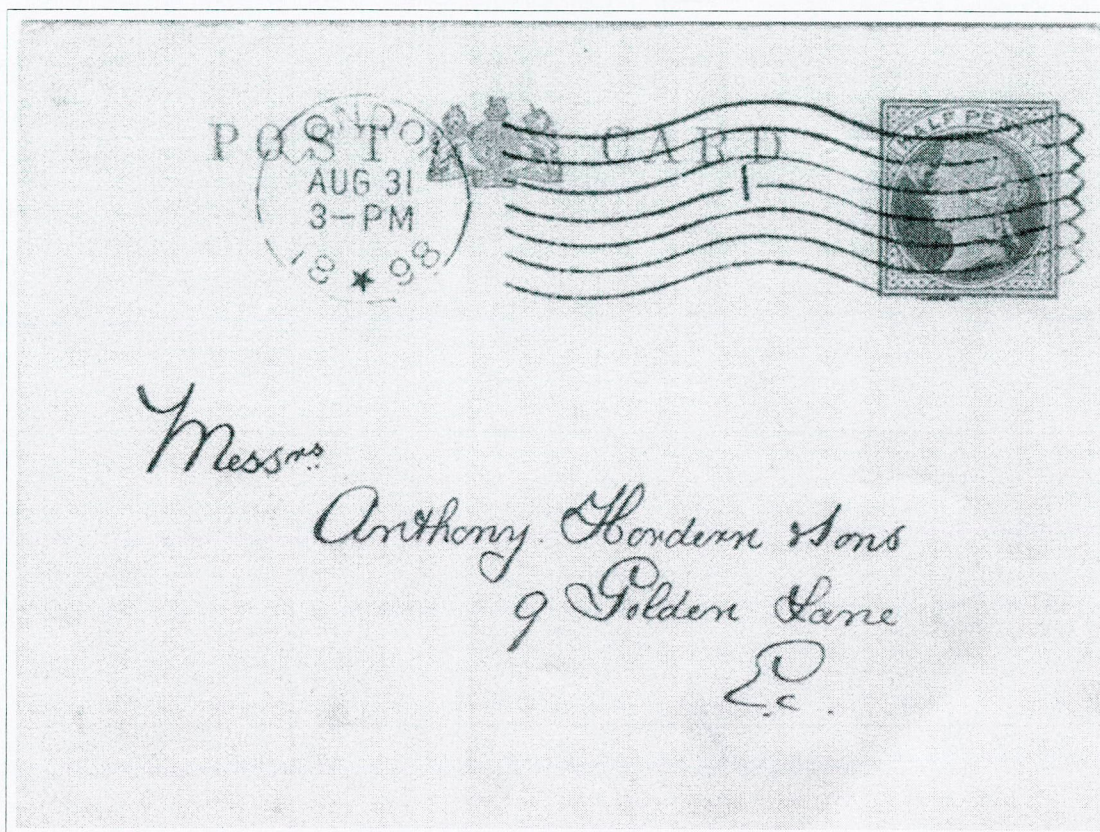 POST CARD
LONDON
AUG 31
3-PM
18 ★ 98
1
HALF PENNY
Messrs
Anthony. Hordern & Sons
9 Golden Lane
E.C.